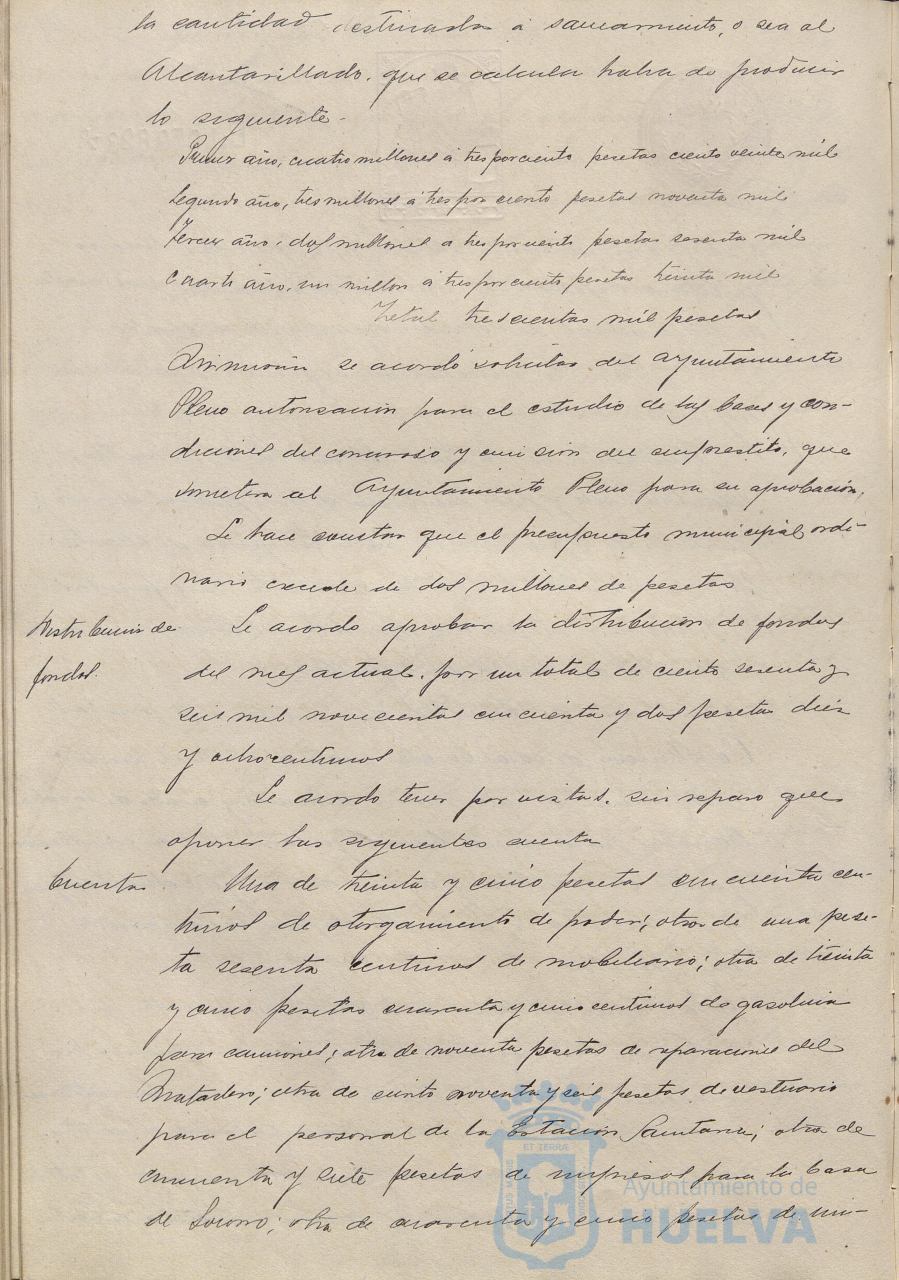 la cantidad destinada a saneamiento, o sea al
Alcantarillado, que se calcula habra de producir
lo siguiente.
Primer año, cuatro millones á tres por ciento pesetas ciento veinte mil
Segundo año, tres millones á tres por ciento pesetas noventa mil
Tercer año, dos millones a tres por ciento pesetas sesenta mil
Cuarto año, un millon á tres por ciento pesetas treinta mil
Total trescientas mil pesetas
Asimismo se acordó solicitar del Ayuntamiento
Pleno autorizacion para el estudio de las bases y con-
diciones del concurso y emision del emprestito, que
someterá al Ayuntamiento Pleno para su aprobación.
Se hace constar que el presupuesto municipal ordi-
nario excede de dos millones de pesetas
Distribucion de
fondos.
Se acordo aprobar la distribucion de fondos
del mes actual, por un total de ciento sesenta y
seis mil novecientas cincuenta y dos pesetas diez
y ocho centimos
Se acordo tener por vistas, sin reparo que
oponer las siguientes cuentas
Cuentas
Una de treinta y cinco pesetas cincuenta cen-
timos de otorgamiento de poder; otra de una pese-
ta sesenta centimos de mobiliario; otra de treinta
y cinco pesetas cuarenta y cinco centimos de gasolina
para camiones; otra de noventa pesetas de reparaciones del
Matadero; otra de ciento noventa y seis pesetas de vestuario
para el personal de la Estación Sanitaria; otra de
cincuenta y siete pesetas de impresos para la Casa
de Socorro; otra de cuarenta y cinco pesetas de im-
ET TERRÆ
Ayuntamiento de
HUELVA